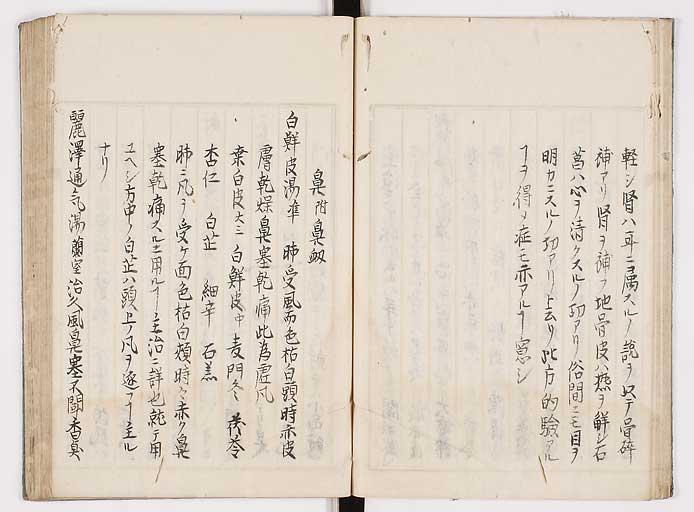 軽シ腎ハ耳ニ属スルノ説ヲ以テ骨砕
補アリ腎ヲ補フ地骨皮ハ熱ヲ解シ石
菖ハ心ヲ清クスルノ功アリ俗間ニモ目ヲ
明カニスルノ功アリト云リ此方ノ的験アル
ヿヲ得ン症モ亦アルヿ寡シ
鼻附鼻衂
白鮮皮湯準 肺受風而色枯白頬時赤皮
膚乾燥鼻塞乾痛此為虚風
桑白皮大三 白鮮皮中 麦門冬 茯苓
杏仁 白芷 細辛 石羔
肺ニ凡ヲ受ケ面色枯白頬時々赤ク鼻
塞乾痛スルニ用ルヿ主治ニ詳也就テ用
ユヘシ方中ノ白芷ハ頭上ノ凡ヲ逐フヿ主ル
ナリ
麗澤通気湯蘭室 治久風鼻塞不聞香臭